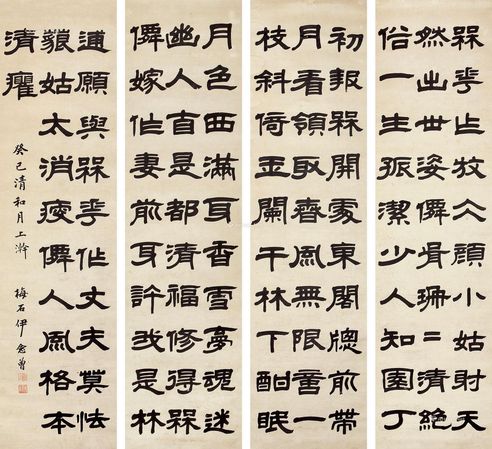 槑華乍放仌顏小姑射天
然出世姿僊骨珊〻清絕
俗一生孤潔少人知園丁
初報槑開處東閣牕前帶
月看領取春風無限意一
枝斜倚玉闌干林下酣眠
月色西滿身香雪夢魂迷
幽人自是都清福修得槑
僊嫁作妻前身許我是林
逋願與槑華作丈夫莫怯
藐姑太消瘦僊人風格本
清癯
癸巳清和月上澣 梅石伊念曾